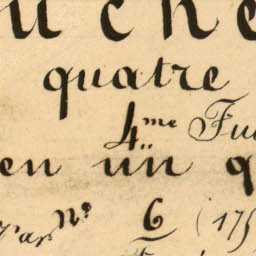 uche
quatre
4me Fu
en un q
Par No. 6 (175